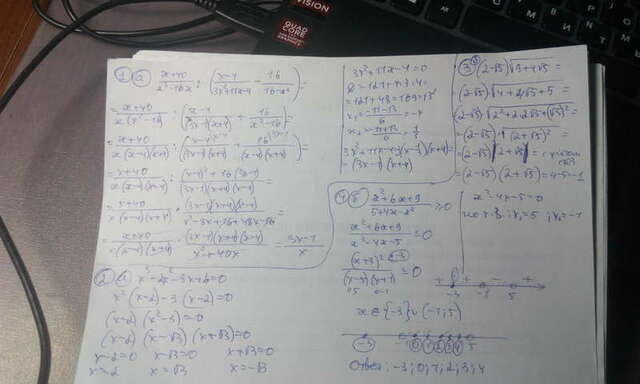 VISION
QUAD CORE
① a) (x+40)/(x³-16x) : ((x-4)/(3x²+11x-4) - 16/(16-x²)) =
= (x+40)/(x(x²-16)) : ((x-4)/((3x-1)(x+4)) + 16/(x²-16)) =
= (x+40)/(x(x-4)(x+4)) : ((x-4)/((3x-1)(x+4)) + 16/((x-4)(x+4))) =
= (x+40)/(x(x-4)(x+4)) : ((x-4)²+16(3x-1))/((3x-1)(x+4)(x-4)) =
= (x+40)/(x(x-4)(x+4)) · ((3x-1)(x+4)(x-4))/(x²-8x+16+48x-16) =
= (x+40)/(x(x-4)(x+4)) · ((3x-1)(x+4)(x-4))/(x²+40x) = (3x-1)/x
3x²+11x-4=0
D=121+4·3·4=
=121+48=169=13²
x₁=(-11-13)/6=-4
x₂=(-11+13)/6=1/3
3x²+11x-4=3(x-1/3)(x+4)=
=(3x-1)(x+4)
3) (2-√5)√(9+4√5)=
=(2-√5)√(4+2·2√5+5)=
=(2-√5)√(2²+2·2√5+(√5)²)=
=(2-√5)·√((2+√5)²)=
=(2-√5)|2+√5|=
=(2-√5)(2+√5)=4-5=-1
(x²+6x+9)/(5+4x-x²)≥0
(x²+6x+9)/(x²-4x-5)≤0
(x+3)²/((x-5)(x+1))≤0
x²-4x-5=0
x₁=5; x₂=-1
+ + - +
-3 -1 5
x∈{-3}∪(-1;5)
-3 -1 0 1 2 3 4 5
Ответ: -3;0;1;2;3;4
② a) x³-2x²-3x+6=0
x²(x-2)-3(x-2)=0
(x-2)(x²-3)=0
(x-2)(x-√3)(x+√3)=0
x-2=0 x-√3=0 x+√3=0
x=2 x=√3 x=-√3